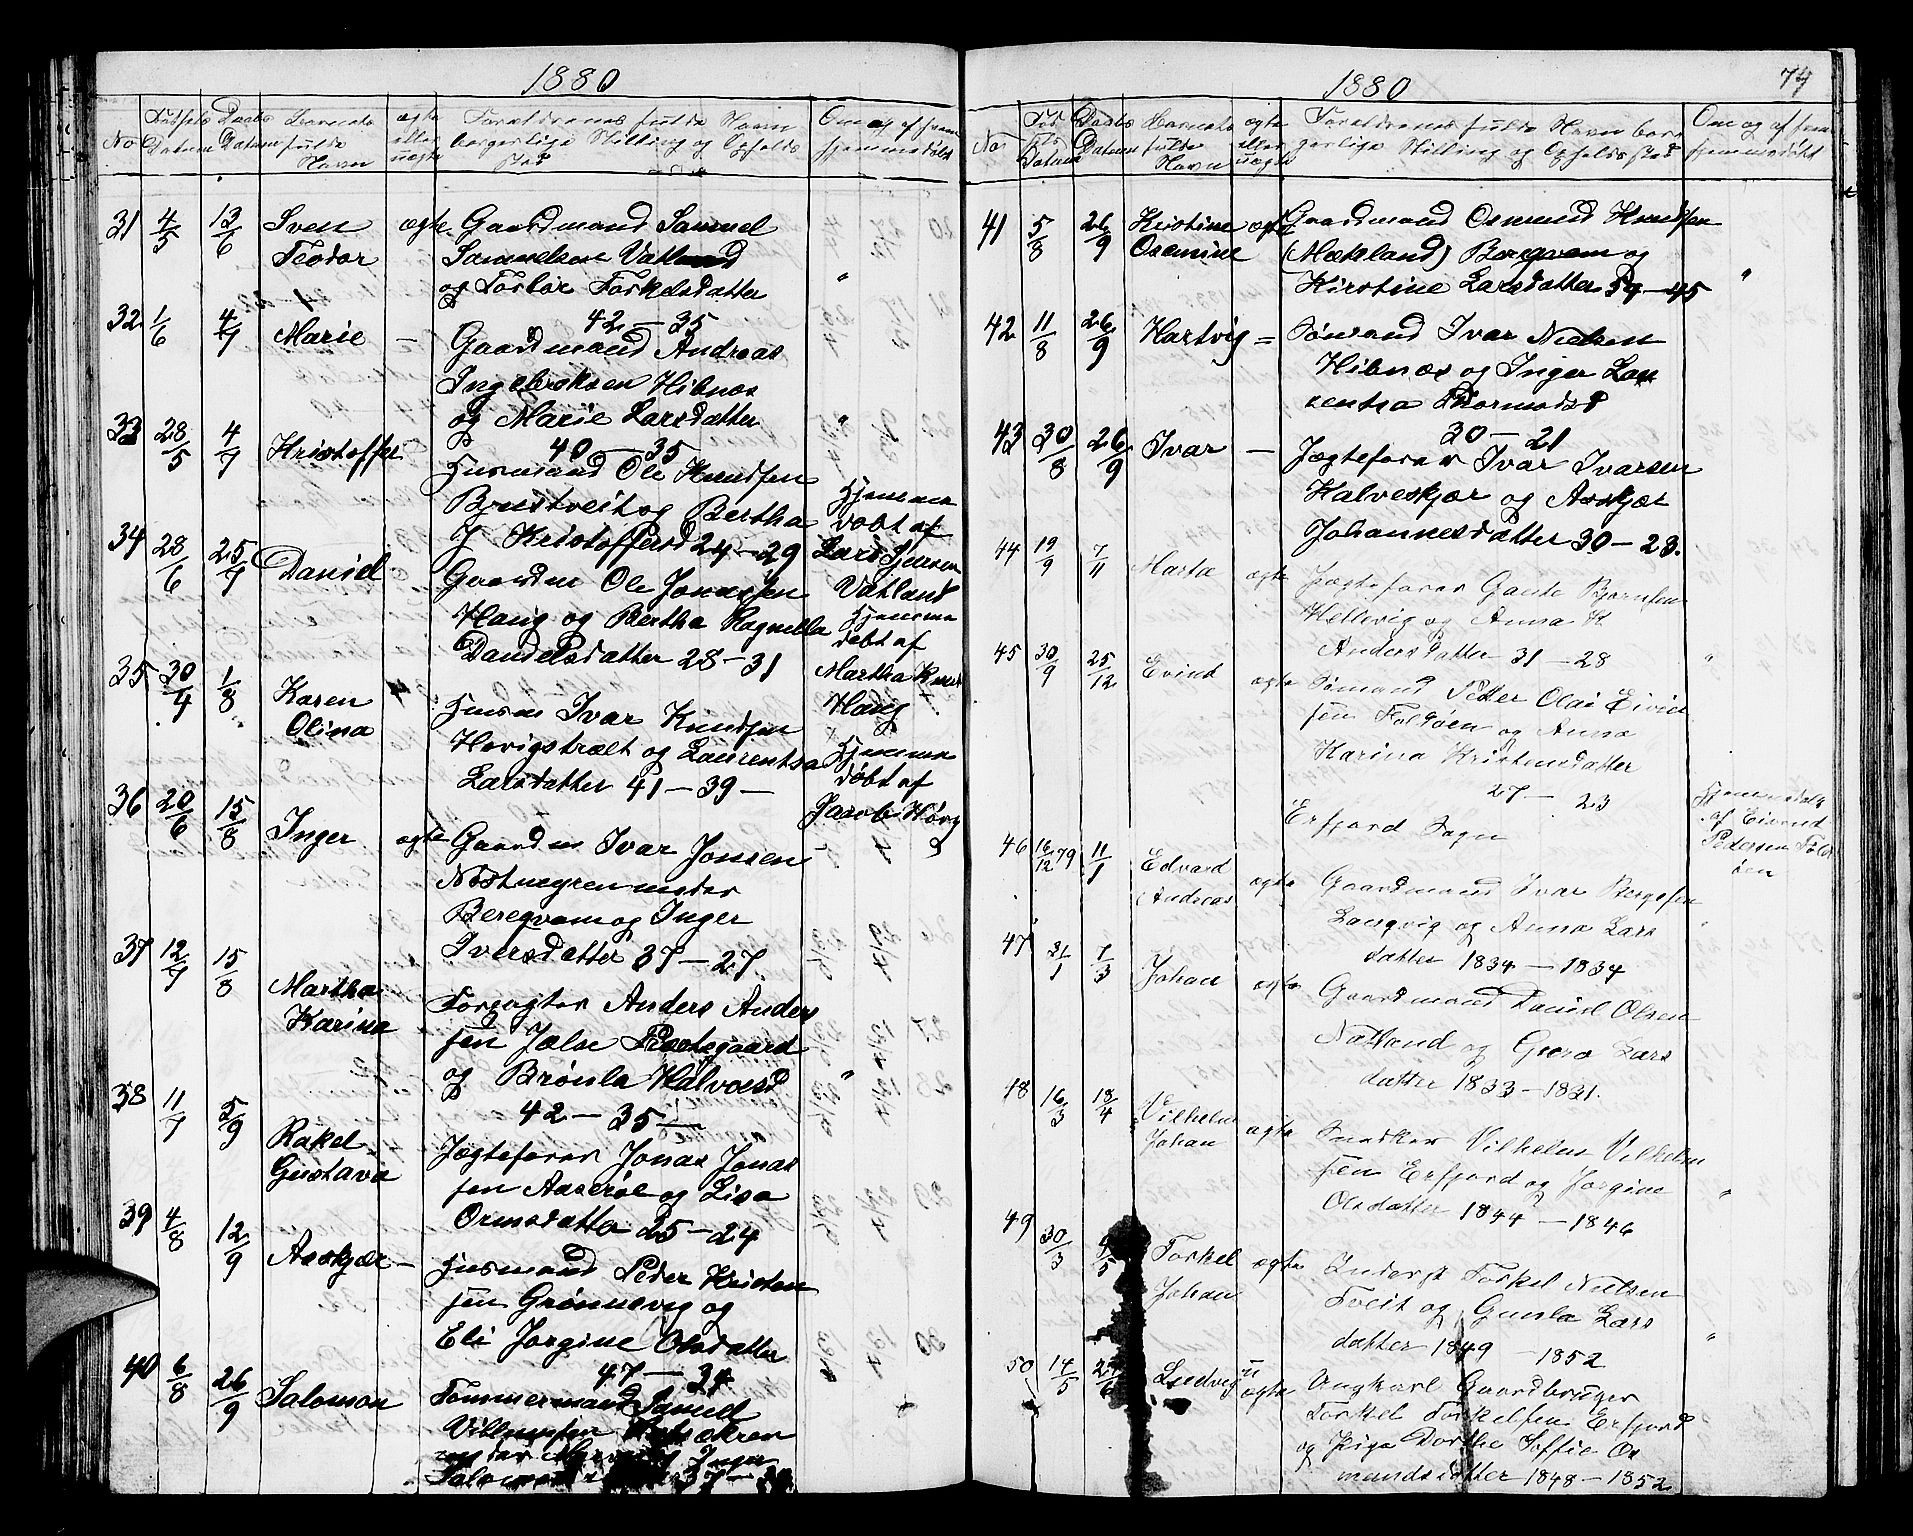 1880
No
Fødsels Datum
Daabs Datum
Barnets fulde Navn
ægte eller uægte
Forældrenes fulde Navn
borgerlige Stilling og Opholds
sted
Om og af hvem
hjemmedøbt
31 4/5 13/6 Sven ægte Gaardmand Samuel
Teodor Samuelsen Vatland
og Torbor Torkelsdatter "
42 – 35
32 1/6 4/7 Marie – Gaardmand Andreas
Ingebretsen Hibnæs
og Marie Larsdatter "
40 – 35
33 28/5 4/7 Kristoffer Husmand Ole Knudsen
Brustveit og Bertha
Kristoffersd 24 – 29
Hjemme
døbt af
Lars
Vatland
34 28/6 25/7 Daniel Gaardm Ole Jonassen
Haug og Bertha Ragnilla
Danielsdatter 28 – 31
Hjemme
døbt af
Martha
Haug
35 30/4 1/8 Karen
Olina
Husm Ivar Knudsen
Hovigstrælt og Laurentsa
Larsdatter 41 – 39 –
Hjemme
døbt af
Jacob
36 20/6 15/8 Inger ægte Gaardm Ivar Jonsen
Bergvam og Inger
Iversdatter 37 – 27
37 12/7 15/8 Martha
Karina
Forpagter Anders Anders
sen Jelse Præstegaard
og Brønla Halvorsd "
42 – 35 –
38 11/7 5/9 Rakel
Gustava
Jægtefører Jonas Jonas
sen Aaserøe og Lisa
Ormsdatter 25 – 24
39 4/8 12/9 Aaskjær – Husmand Peder Kristen
sen Grønnevig og
Eli Jorgine Olsdatter
47 – 34
40 6/8 26/9 Salomon Tømmermand Samuel
Villumsen
Inger
1880
74
No
Fødsels Datum
Daabs Datum
Barnets fulde Navn
ægte eller uægte
Forældrenes fulde Navn bor
gerlige Stilling og Opholdssted
Om og af hvem
hjemmedøbt
41 5/8 26/9 Kristine ægte Gaardmand Osmund Knudsen
Osemine (Mækland) Bergvam og
Kirstine Larsdatter 59 – 45 "
42 11/8 26/9 Hartvig = Sømand Ivar Nielsen
Hibnæs og Inger Lau
rentsa Thormodsd
30 – 21
43 30/8 26/9 Ivar – Jægtefører Ivar Ivarsen
Kalveskjær og Aaskjær
Johannesdatter 30 – 28.
44 19/9 7/11 Marta ægte Jægtefører Gaute Bjørnsen
Hellevig og Anna K
Andersdatter 31 – 28 "
45 30/9 25/12 Evind ægte Sømand Petter Olai Eivind
sen Foldøen og Anna
Karina Kristensdatter
27 – 23
Hjemmedøbt
af Eivind
Pedersen Fold
øen
Erfjord Sogn
46 16/12 79 11/1 Edvard
Andreas
ægte Gaardmand Ivar Børgesen
Langvig og Anna Lars
datter 1834 – 1834
47 31/1 7/3 Johan ægte Gaardmand Daniel Olsen
Natland og Guro Lars
datter 1833 – 1831.
48 16/3 18/4 Vilhelm
Johan
ægte Snedker Vilhelm Vilhelm
sen Erfjord og Jorgine
Olsdatter 1844 – 1846 "
49 30/3 Torkel
Johan
ægte Torkel Nielsen
Tveit og Gunla Lars
datter 1849 – 1852 "
50 14/5 Ludvig u
ægte
Ungkarl Gaardbruger
Torkel Torkelsen Erfjord
og Pige Dorthe Soffie Os
mundsdatter 1848 – 1852